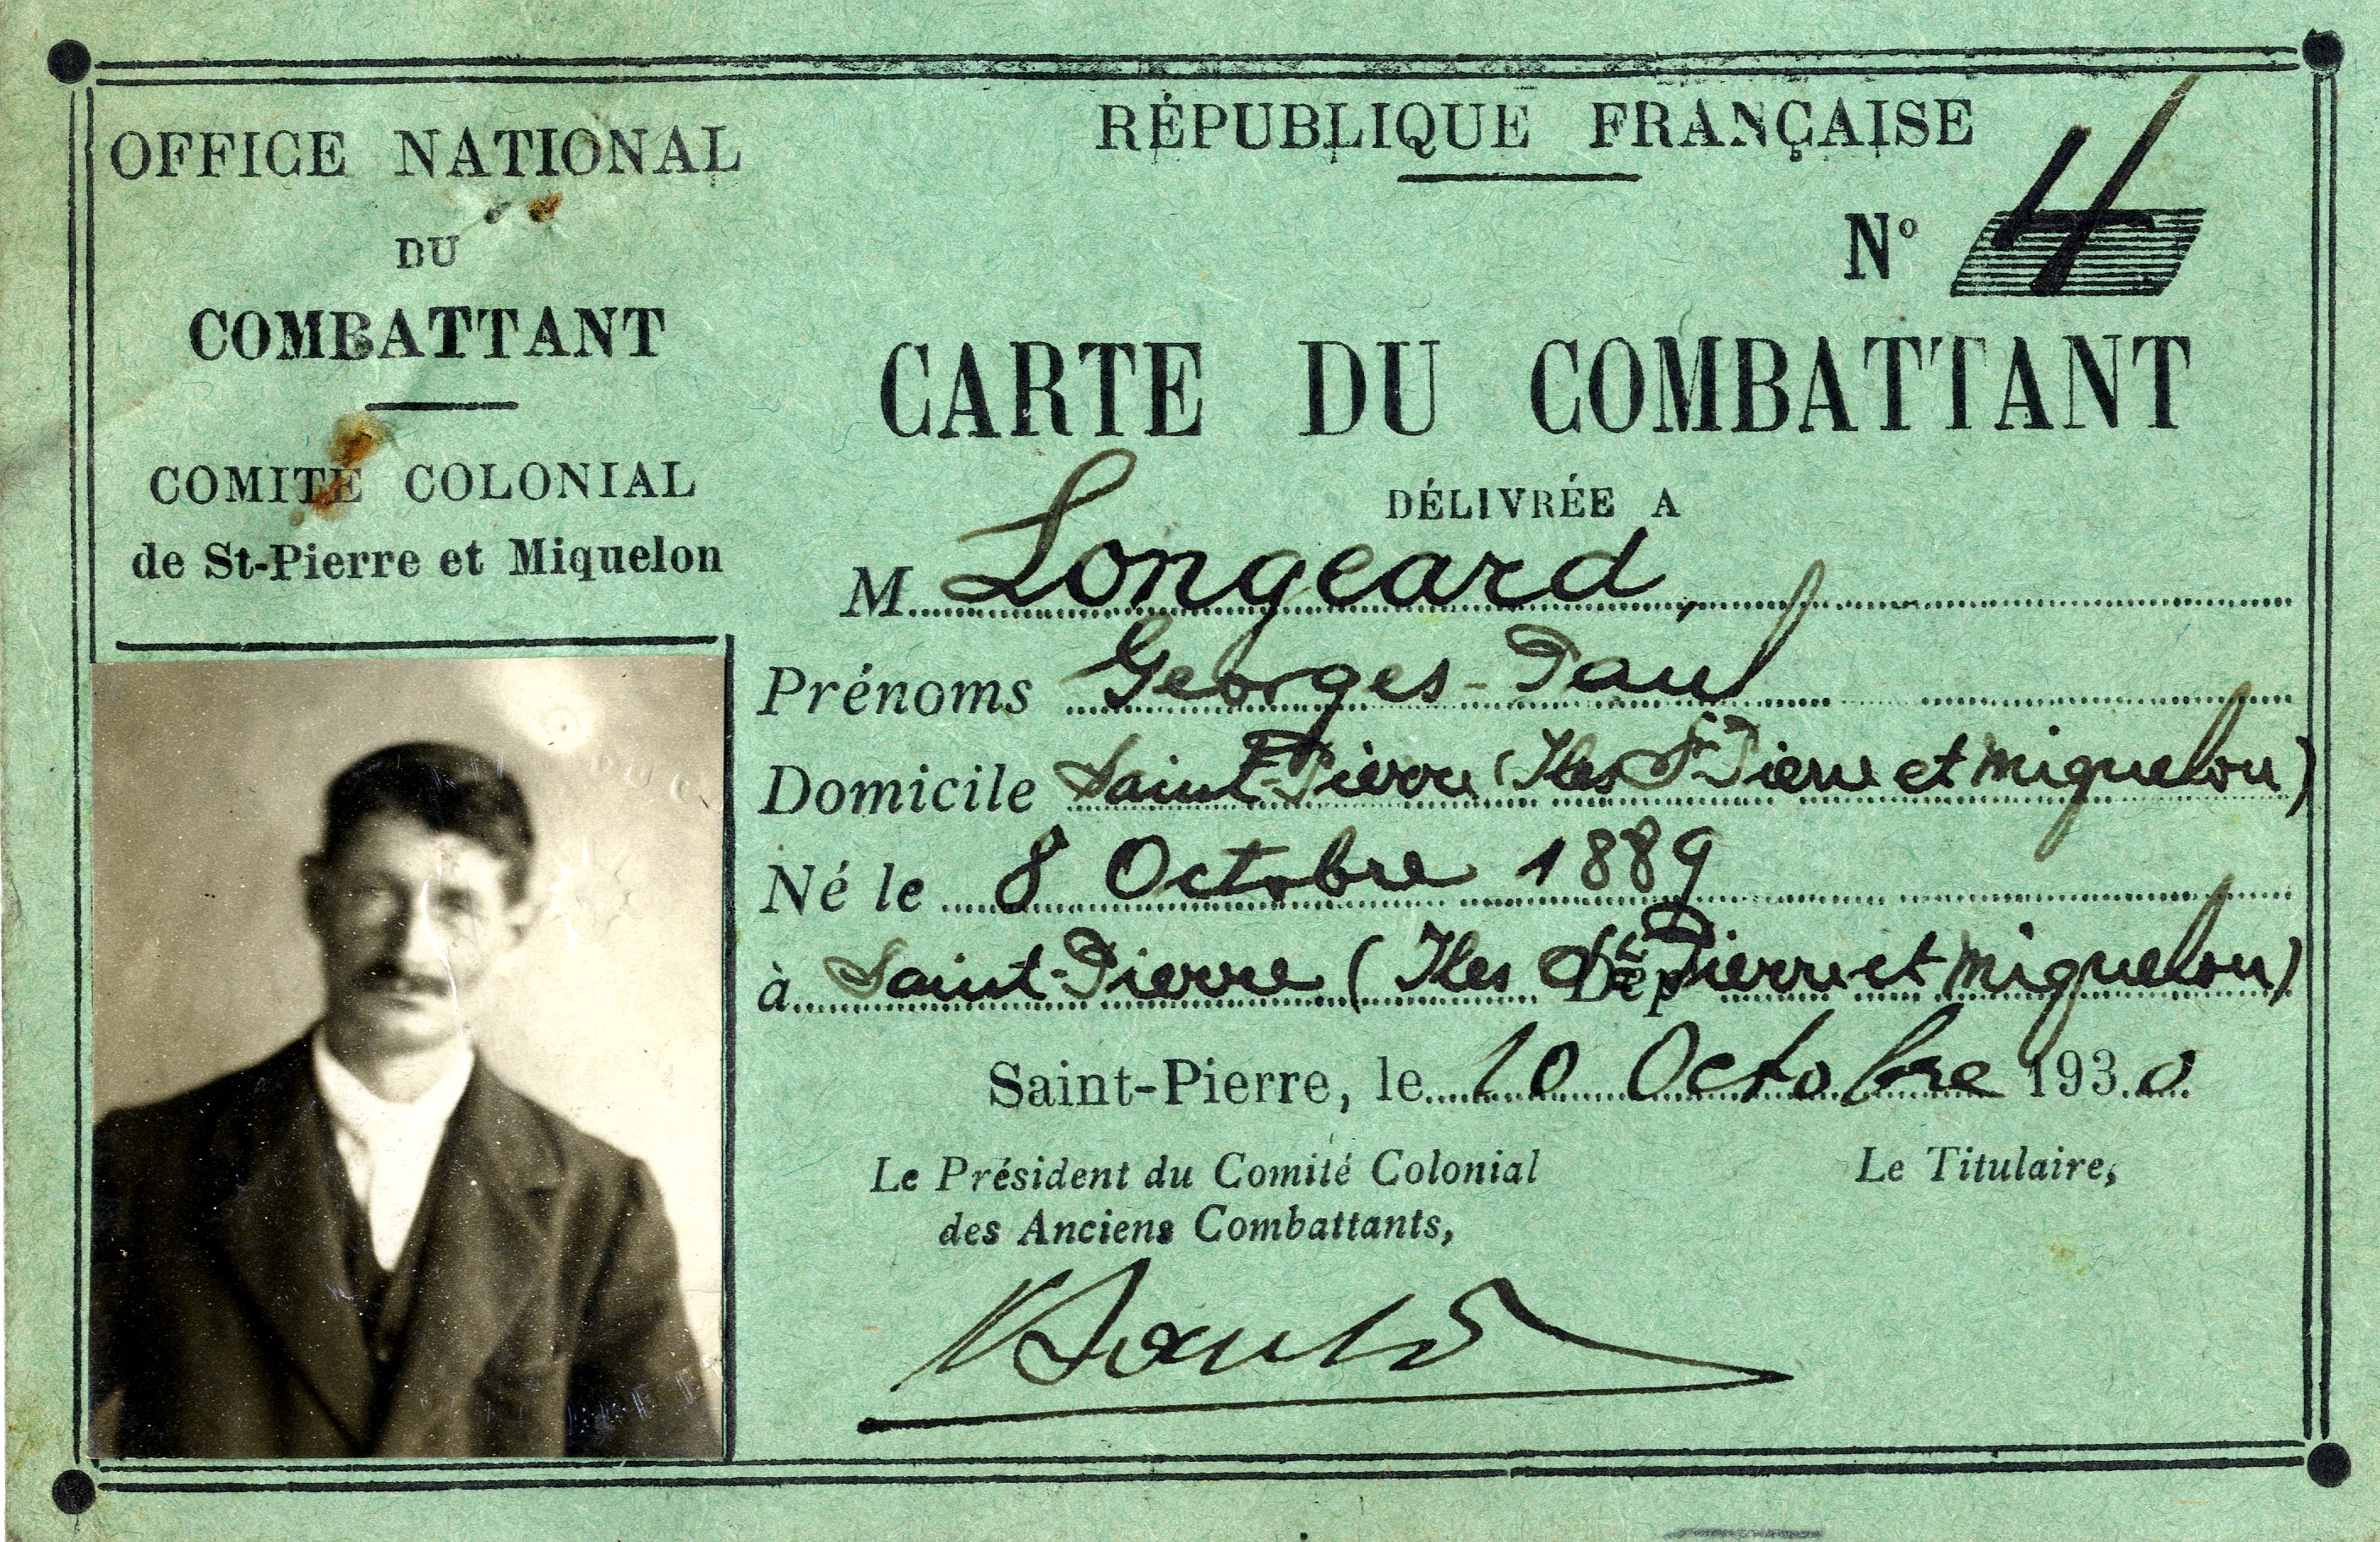 OFFICE NATIONAL
DU
COMBATTANT
COMITÉ COLONIAL
de St-Pierre et Miquelon
RÉPUBLIQUE FRANÇAISE
N° 4
CARTE DU COMBATTANT
DÉLIVRÉE A
M Longeard,
Prénoms Georges-Paul
Domicile Saint-Pierre (Iles St Pierre et Miquelon)
Né le 8 Octobre 1889
à Saint-Pierre (Iles St Dép Pierre et Miquelon)
Saint-Pierre, le 10 Octobre 1930
Le Président du Comité Colonial
des Anciens Combattants,
Le Titulaire,